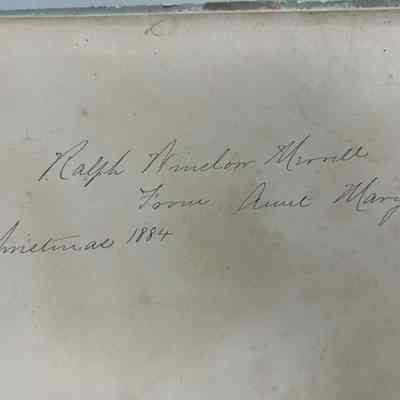 Ralph Winslow Merrill
From Aunt Mary
Christmas 1884